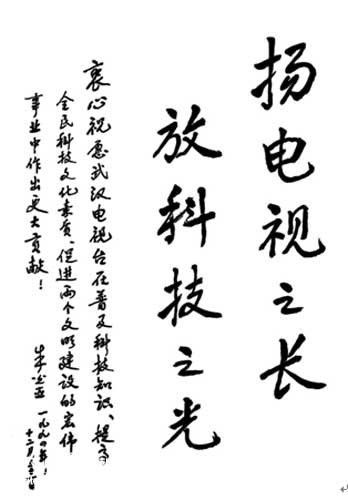 扬电视之长
放科技之光
衷心祝愿武汉电视台在普及科技知识、提高
全民科技文化素质、促进两个文明建设的宏伟
事业中作出更大贡献!
朱光亚 一九九〇年
十二月